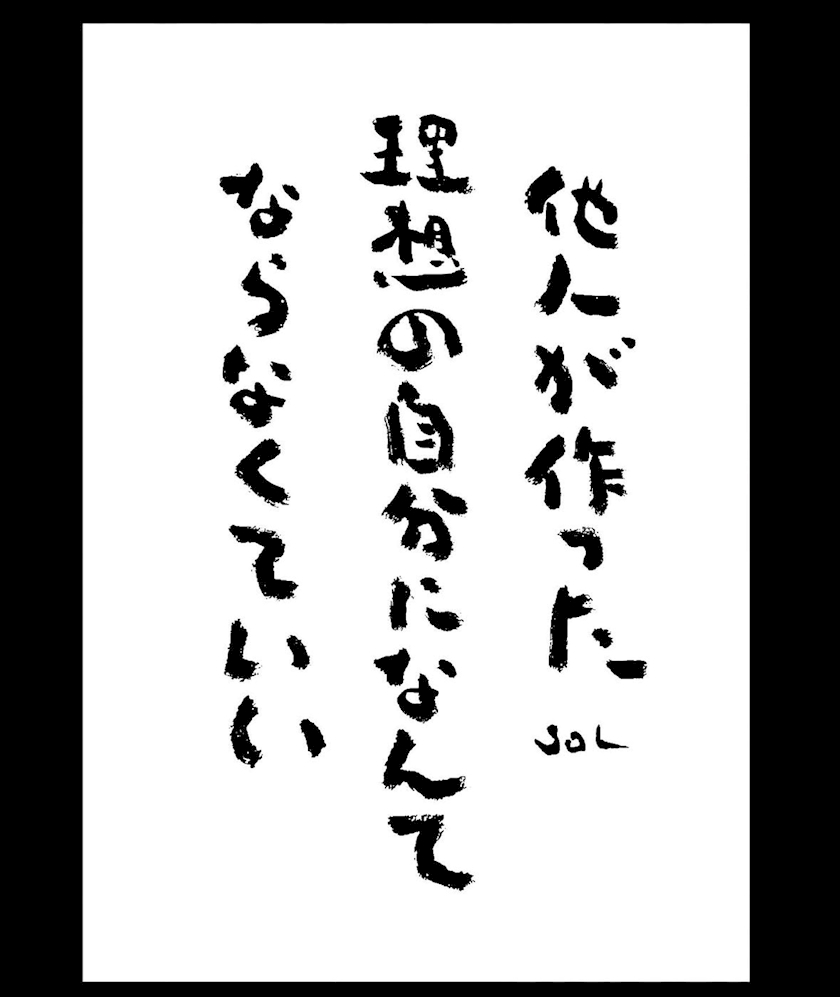 他人が作った
SOL
理想の自分になんて
ならなくていい